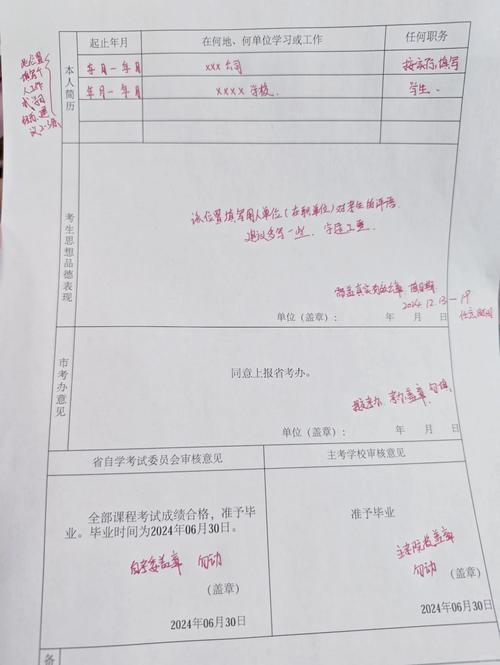 起止年月 在何地、何单位学习或工作 任何职务
本人简历
年月一年月 xxx公司 按实际填写
年月一年月 xxxx学校 学生.
此位置
填写个
人工作
建
议2-3条
考生思想品德表现
该位置填写用人单位(在职单位)对考生的评语.
建议多写一些, 字迹工整
2024.12.13-19
任意时间
单位(盖章): 年 月 日
市考办意见
同意上报省考办。
考办盖章 勿填.
单位(盖章): 年 月 日
省自学考试委员会审核意见 主考学校审核意见
全部课程考试成绩合格,准予毕
业。毕业时间为2024年06月30日。
自考委盖章 勿动
(盖章)
2024年06月30日
准予毕业
主考院校盖章
勿动
(盖章)
2024年06月30日
备